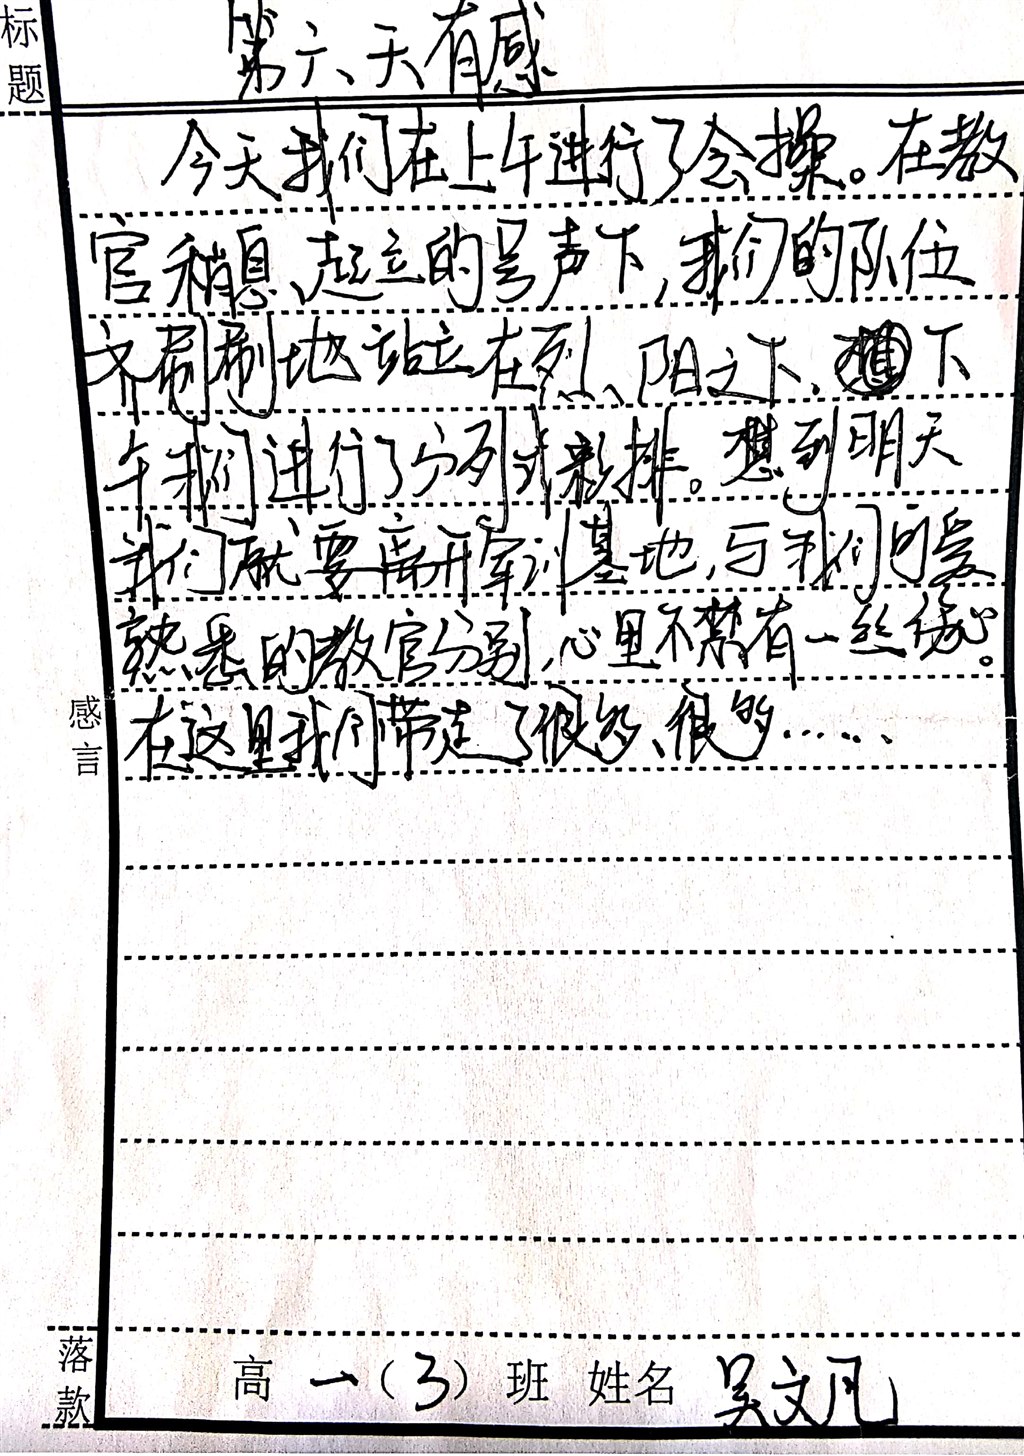 标题
第六天有感
今天我们在上午进行了会操。在教
官稍息、起立的号声下,我们的队伍
齐刷刷地站立在烈阳之下。下
午我们进行了分列式彩排。想到明天
我们就要离开军训基地,与我们可爱
熟悉的教官分别,心里不禁有一丝伤心。
感言
在这里我们带走了很多、很多……
落款
高一(3)班 姓名 吴文凡